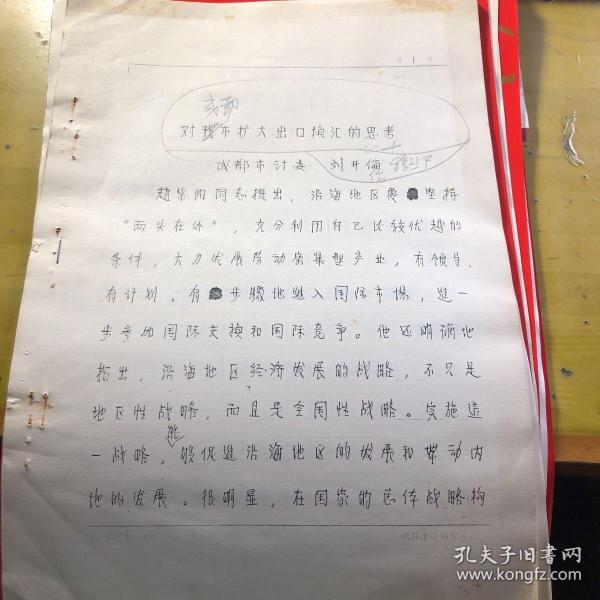 第 1 页
成都
对我市扩大出口换汇的思考
成都市计委 刘开倫
赵紫阳同志提出，沿海地区要坚持
“两头在外”，充分利用自己比较优越的
条件，大力发展劳动密集型产业，有领导、
有计划、有步骤地進入国际市场，進一
步参加国际交换和国际竞争。他还明确地
指出，沿海地区经济发展的战略，不只是
地区性战略，而且是全国性战略。实施这
能
一战略，够促進沿海地区的发展和带动内
地的发展。很明显，在国家的总体战略构
成都市计划委员会
孔夫子旧书网
www.kongfz.com